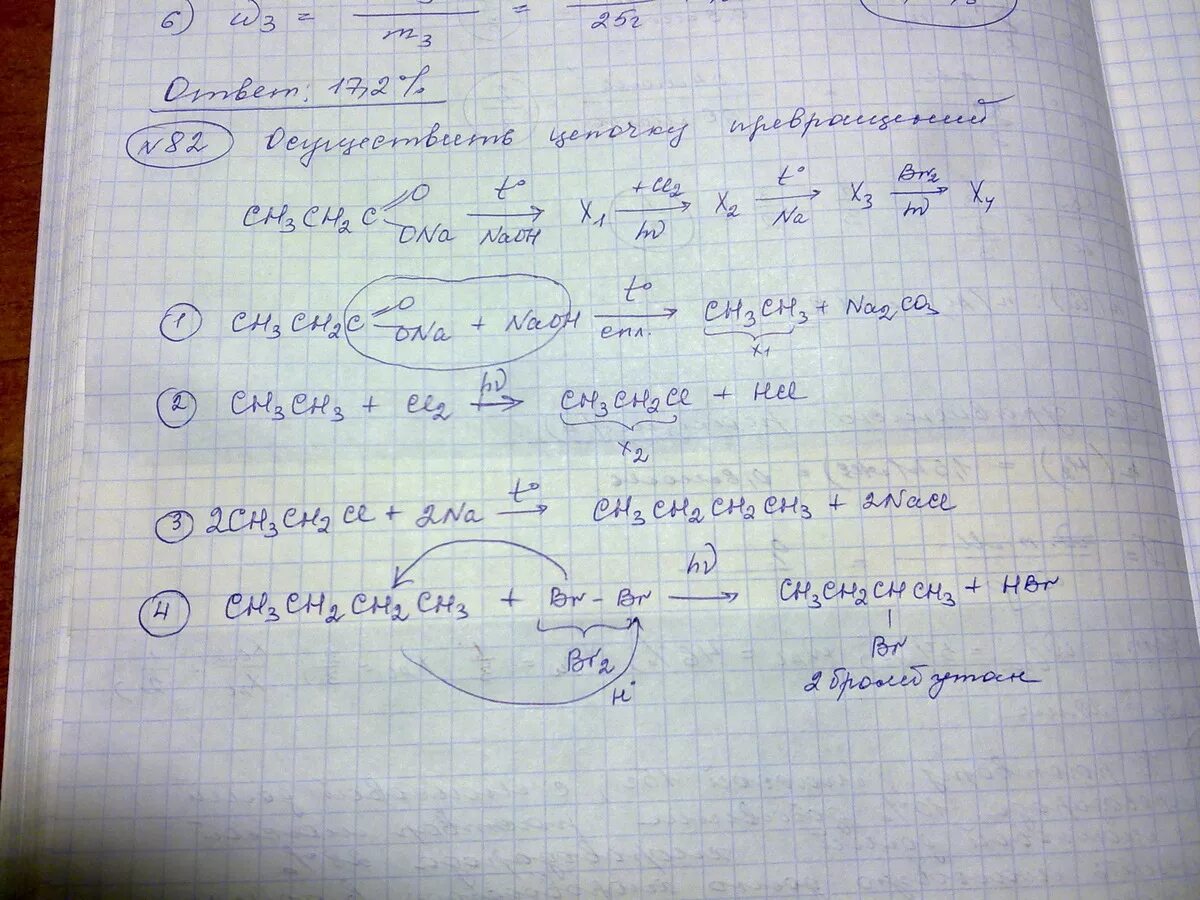 6) W₃ = / m₃ = / 25г
Ответ: 17,2%
№82 Осуществить цепочку превращений
CH₃CH₂C(=O)ONa —t°/NaOH→ X₁ —+Cl₂/hν→ X₂ —t°/Na→ X₃ —Br₂/hν→ X₄
① CH₃CH₂C(=O)ONa + NaOH —t°/спл.→ CH₃CH₃ + Na₂CO₃
X₁
② CH₃CH₃ + Cl₂ —hν→ CH₃CH₂Cl + HCl
X₂
③ 2CH₃CH₂Cl + 2Na —t°→ CH₃CH₂CH₂CH₃ + 2NaCl
④ CH₃CH₂CH₂CH₃ + Br–Br —hν→ CH₃CH₂CHCH₃ + HBr
Br₂ Br
H˙ 2бромбутан